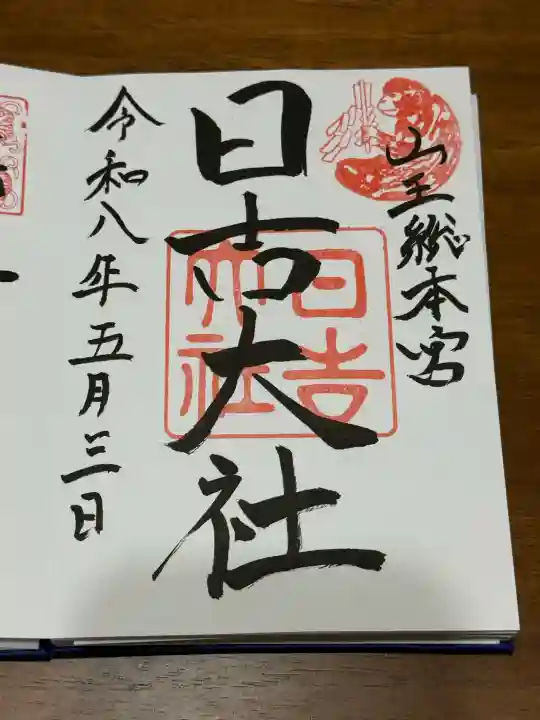 山王総本宮
日吉大社
日吉
大社
令和八年五月三日